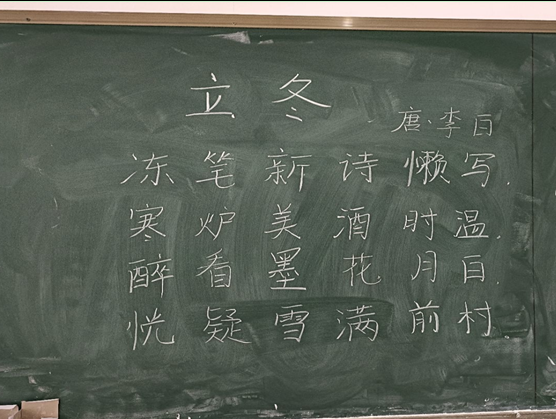 立冬
唐·李白
冻笔新诗懒写.
寒炉美酒时温.
醉看墨花月白.
恍疑雪满前村.